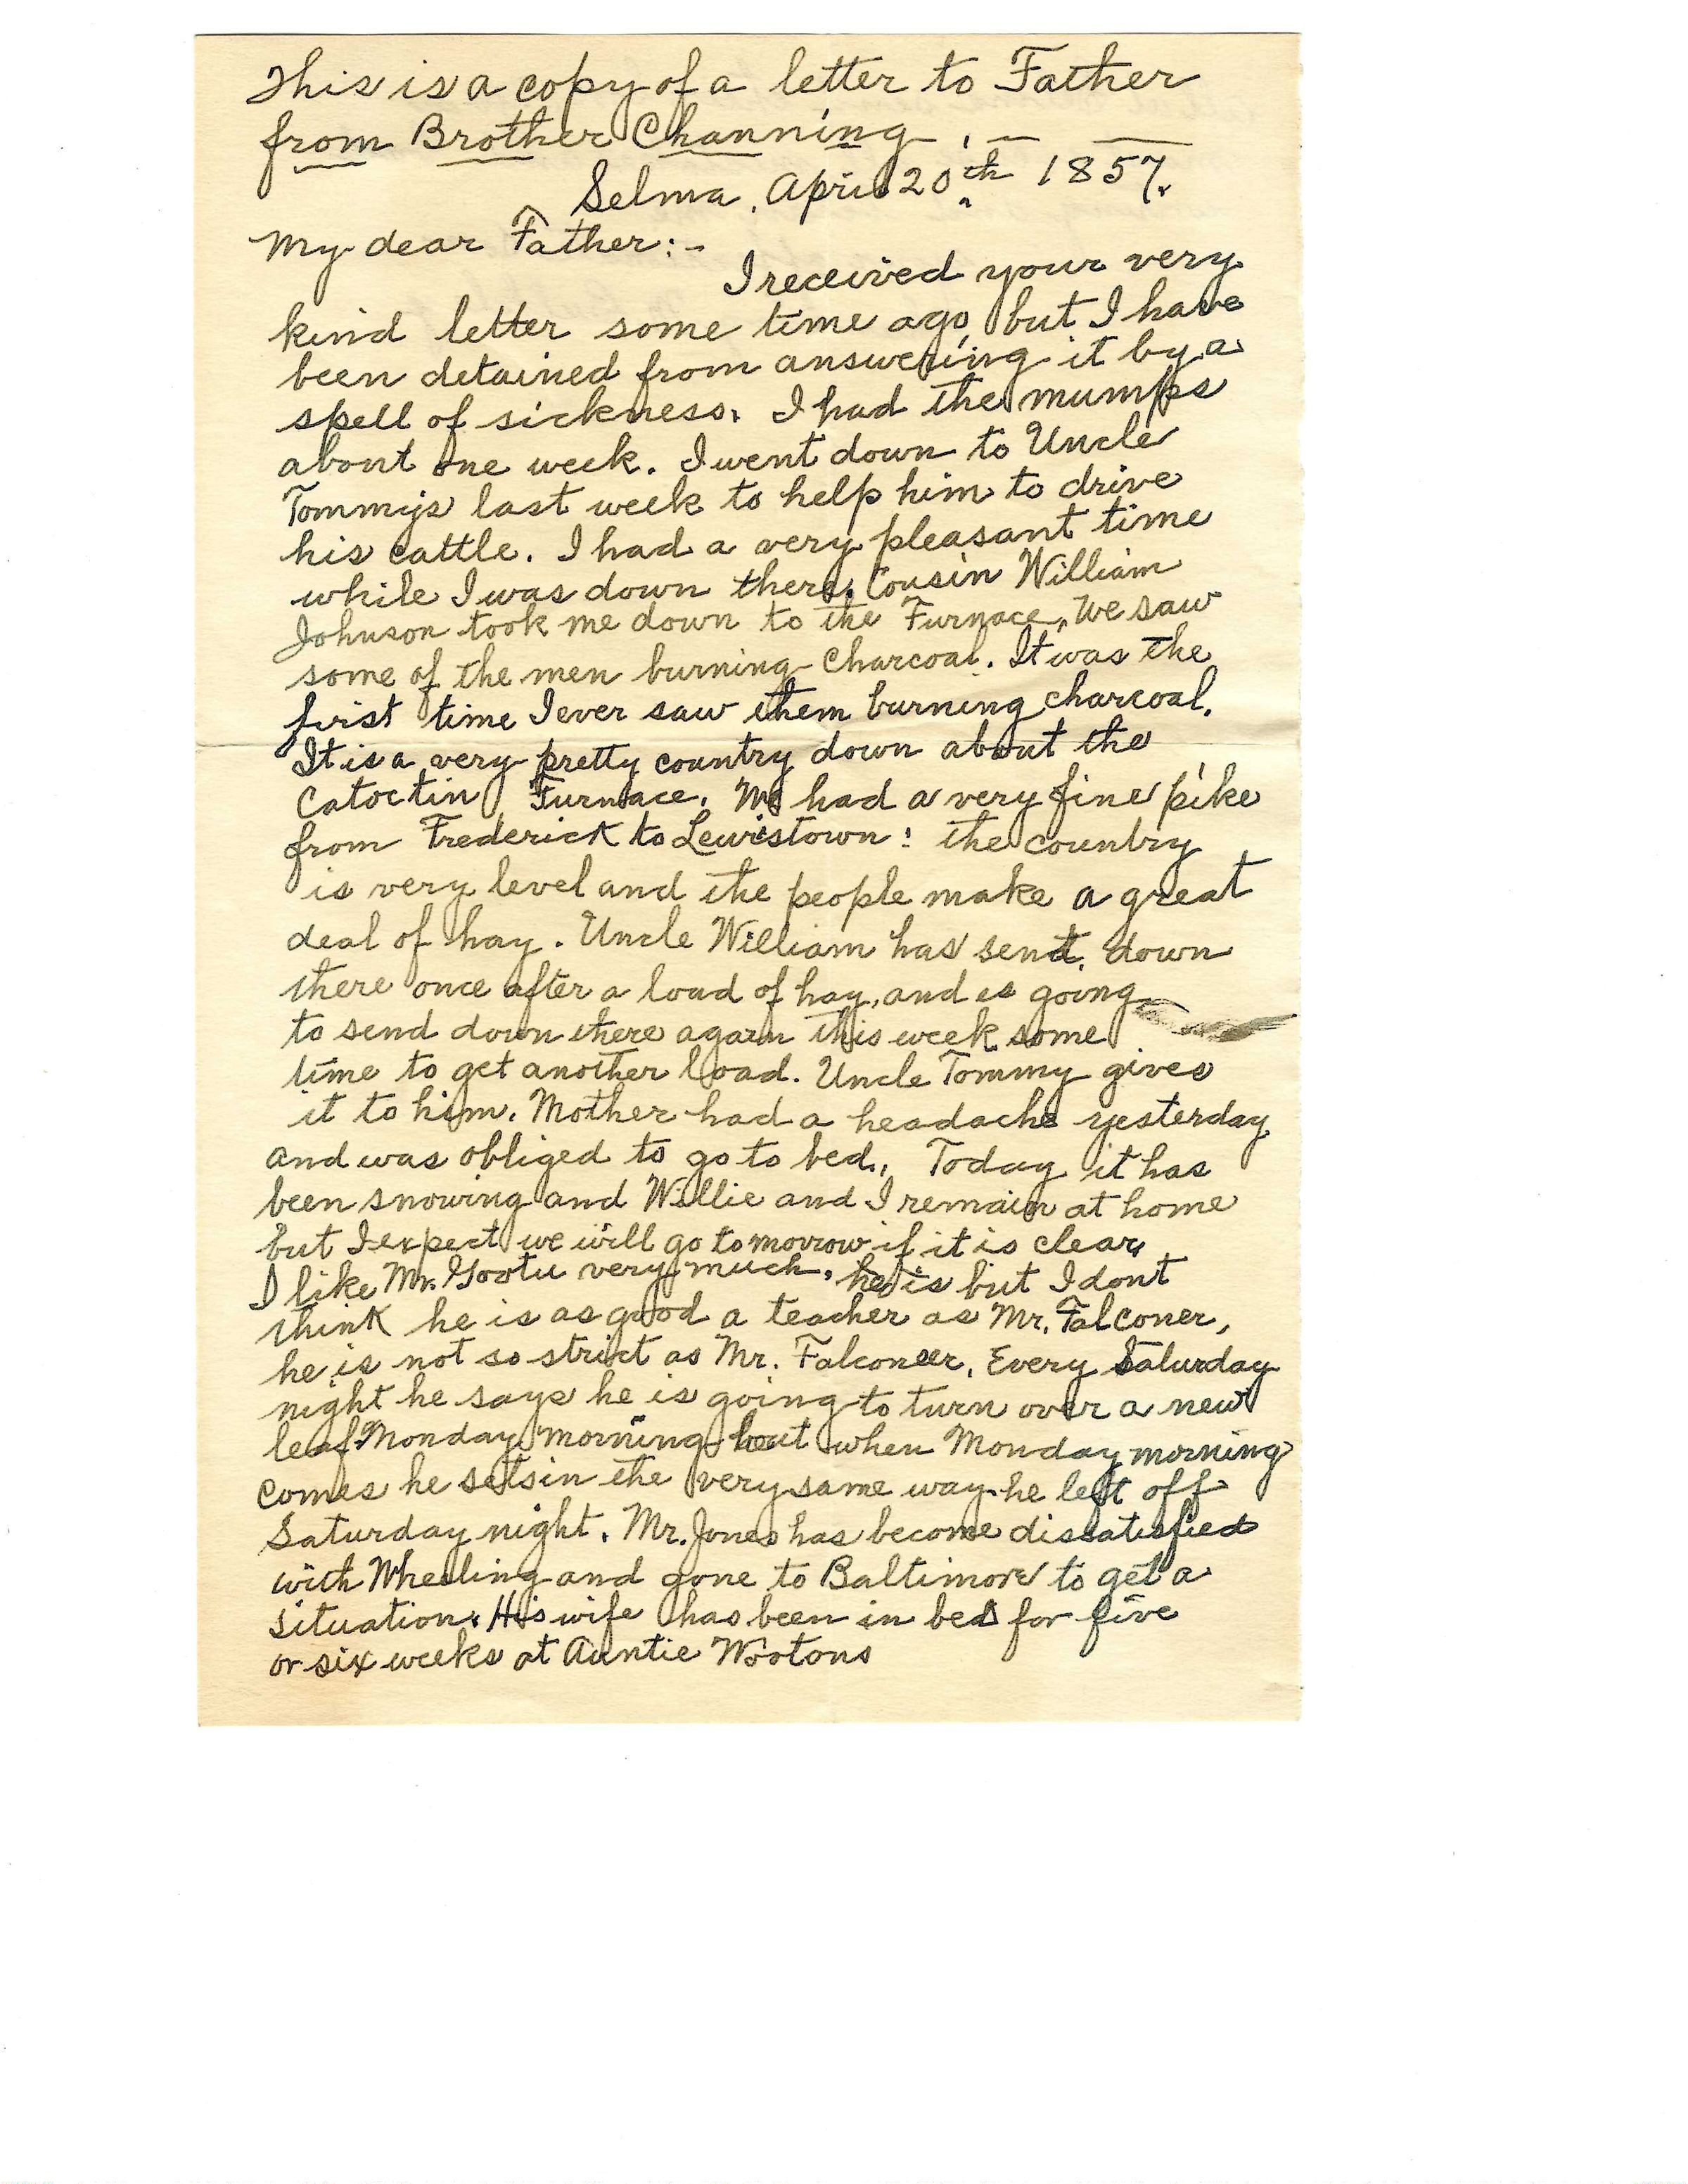 This is a copy of a letter to Father
from Brother Channing. — —
Selma, April 20th 1857.
My dear Father:-
I received your very
kind letter some time ago, but I have
been detained from answering it by a
spell of sickness. I had the mumps
about one week. I went down to Uncle
Tommys last week to help him to drive
his cattle. I had a very pleasant time
while I was down there. Cousin William
Johnson took me down to the Furnace, We saw
some of the men burning Charcoal. It was the
first time I ever saw them burning charcoal.
It is a very pretty country down about the
Catoctin Furnace. We had a very fine pike
from Frederick to Lewistown: the country
is very level and the people make a great
deal of hay. Uncle William has sent down
there once after a load of hay, and is going
to send down there again this week some
time to get another load. Uncle Tommy gives
it to him. Mother had a headache yesterday
and was obliged to go to bed. Today it has
been snowing and Willie and I remain at home
but I expect we will go tomorrow if it is clear,
I like Mr. very much, he is but I dont
think he is as good a teacher as Mr. Falconer,
he is not so strict as Mr. Falconer. Every Saturday
night he says he is going to turn over a new
leaf Monday morning but when Monday morning
comes he sets in the very same way he left off
Saturday night. Mr. Jones has become dissatisfied
with Wheeling and gone to Baltimore to get a
situation. His wife has been in bed for five
or six weeks at Auntie Wootons